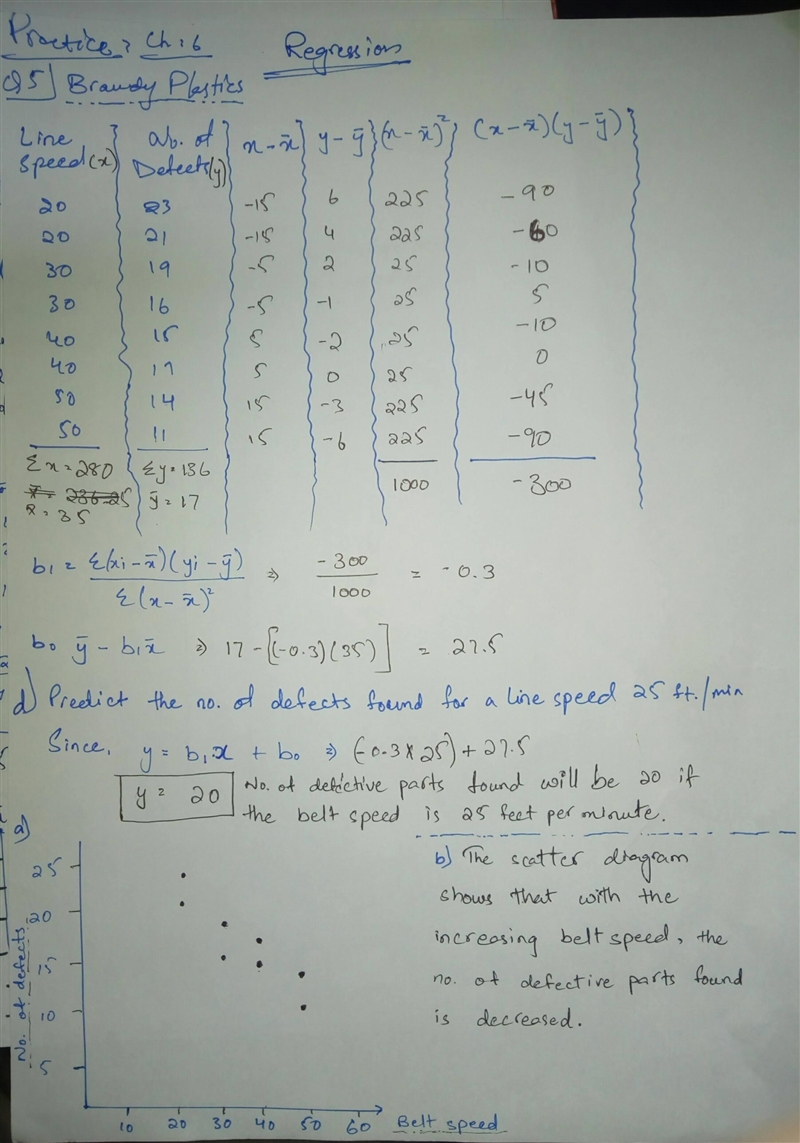 Practice: Ch: 6 Regression
Q5] Brandy Plastics
Line Speed (x) No. of Defects (y) x-x̄ y-ȳ (x-x̄)² (x-x̄)(y-ȳ)
20 23 -15 6 225 -90
20 21 -15 4 225 -60
30 19 -5 2 25 -10
30 16 -5 -1 25 5
40 15 5 -2 25 -10
40 17 5 0 25 0
50 14 15 -3 225 -45
50 11 15 -6 225 -90
Σx = 280 Σy = 136 1000 -300
x̄ = 35 ȳ = 17
b₁ = Σ(xi-x̄)(yi-ȳ) / Σ(x-x̄)² ⇒ -300 / 1000 = -0.3
b₀ ȳ - b₁x̄ ⇒ 17-[(-0.3)(35)] = 27.5
d) Predict the no. of defects found for a line speed 25 ft./min
Since, y = b₁x + b₀ ⇒ (-0.3×25)+27.5
y = 20 No. of defective parts found will be 20 if
the belt speed is 25 feet per minute.
a)
25
20
15
10
5
No. of defects
10 20 30 40 50 60 Belt speed
b) The scatter diagram
shows that with the
increasing belt speed, the
no. of defective parts found
is decreased.